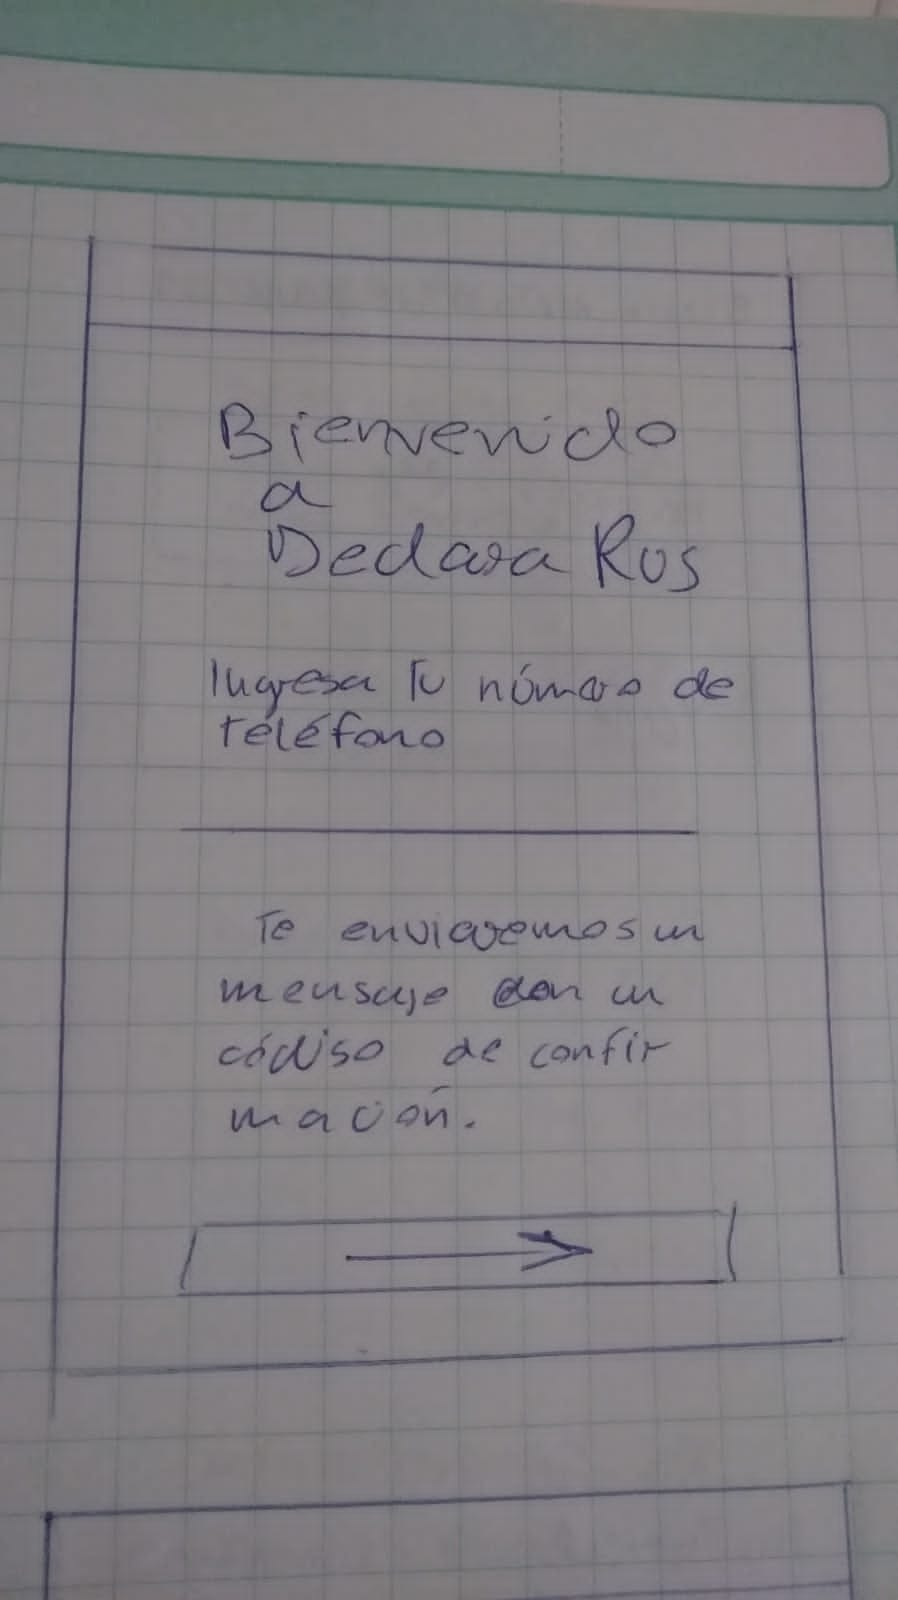 Bienvenido
a
Declara Rus
Ingresa Tu número de
teléfono
Te enviaremos un
mensaje con un
código de confir
mación.